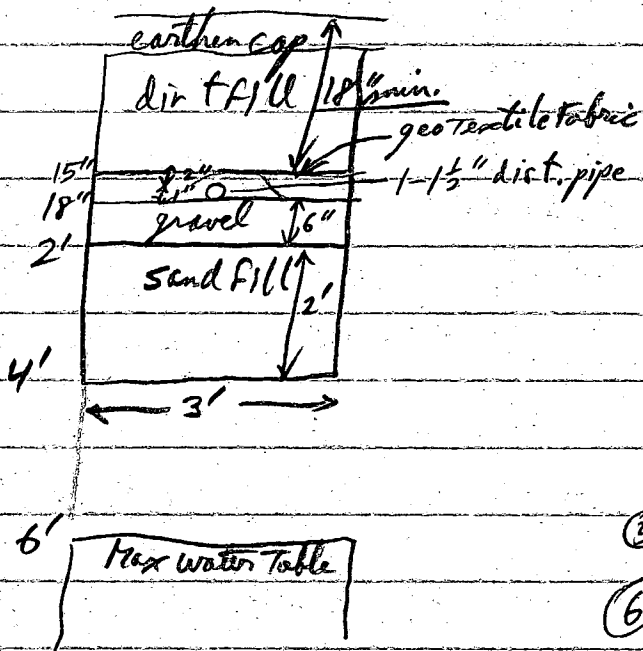 earthen cap
dirt fill 18" min.
geo Textile Fabric
15" 2" 1-1½" dist. pipe
18" 1"
gravel 6"
2'
sand fill 2'
4'
3'
6'
Max water Table
6